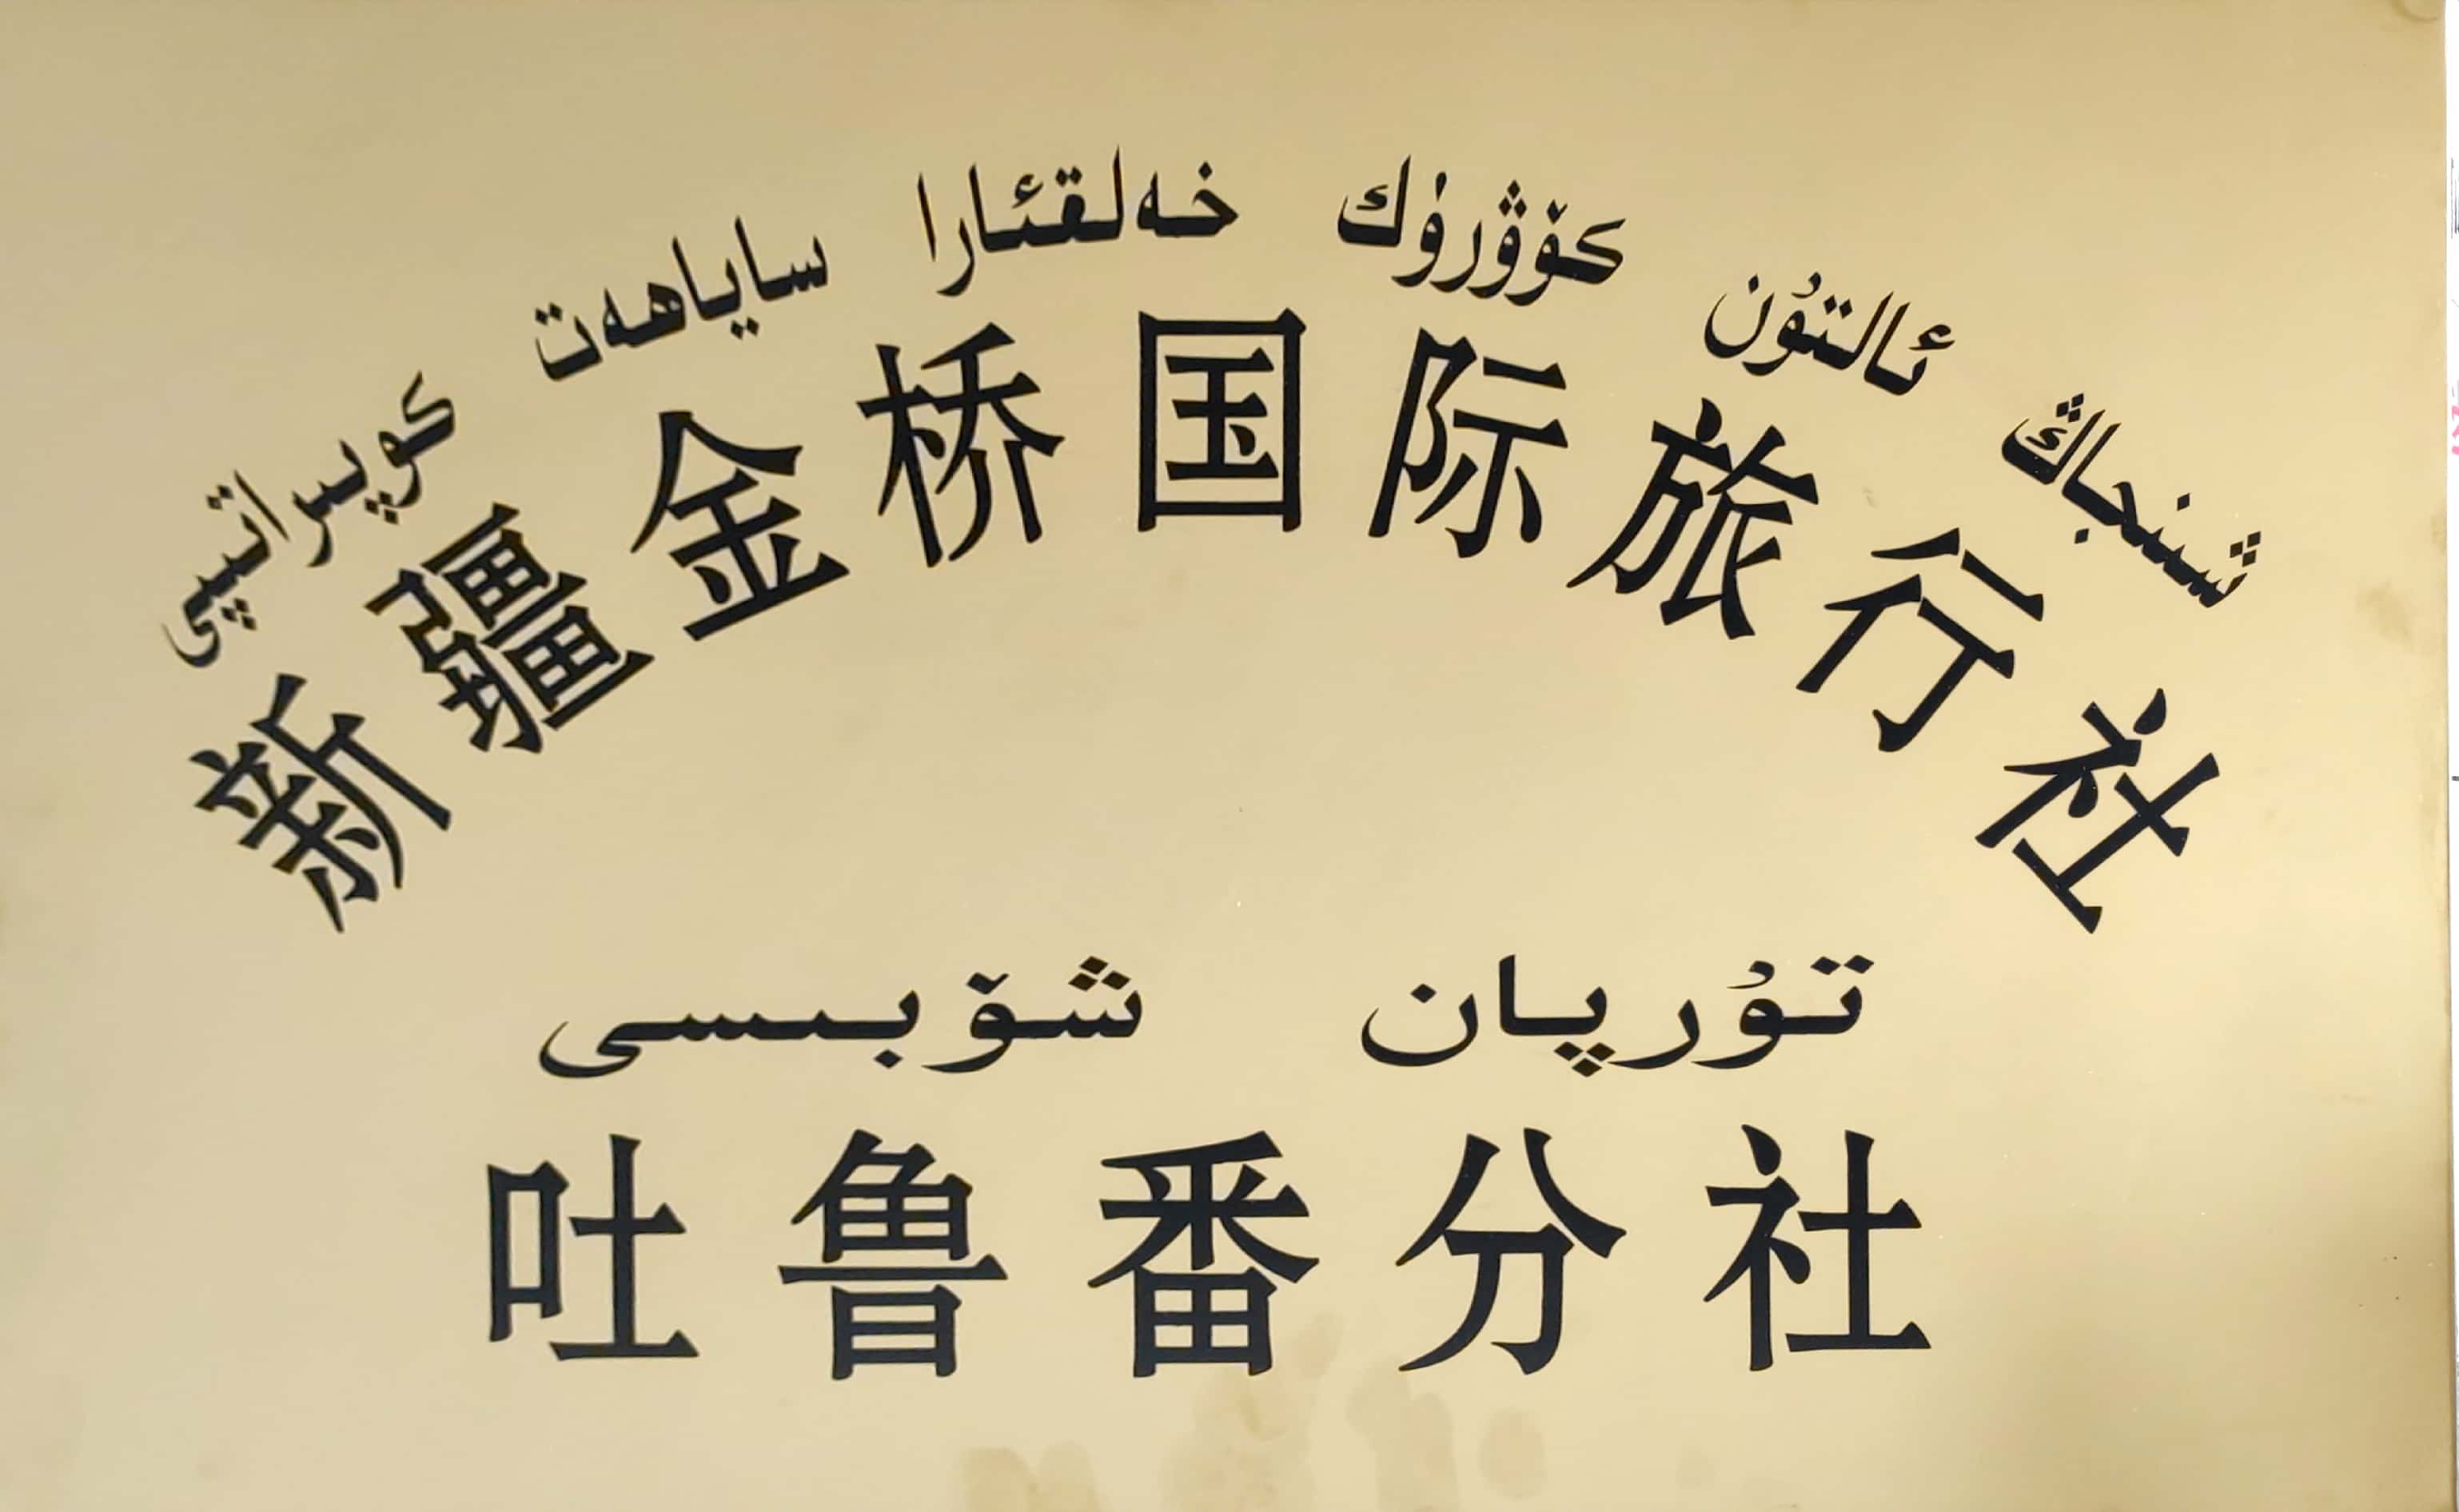 شىنجاڭ ئالتۇن كۆۋرۈك خەلقئارا ساياھەت كوپىراتىپى
新疆金桥国际旅行社
تۇرپان شۆبىسى
吐鲁番分社